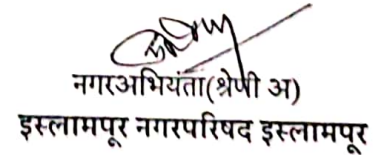 नगरअभियंता(श्रेणी अ)
इस्लामपूर नगरपरिषद इस्लामपूर